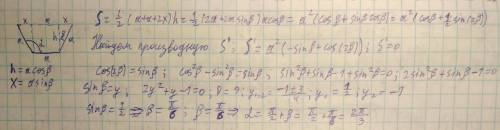 x x
a h β a
α
a
h = a cosβ
x = a sinβ
S = 1/2 (a+a+2x)h = 1/2 (2a+2a sinβ) a cosβ = a²(cosβ + sinβ cosβ) = a²(cosβ + 1/2 sin(2β))
Найдем производную S': S' = a²(-sinβ + cos(2β)); S'=0
cos(2β) = sinβ; cos²β - sin²β = sinβ; sin²β + sinβ - 1 + sin²β = 0; 2sin²β + sinβ - 1 = 0
sinβ = y; 2y² + y - 1 = 0; D = 9; y₁,₂ = (-1±3)/4; y₁ = 1/2; y₂ = -1
sinβ = 1/2 ⇒ β = π/6; β = π/6 ⇒ α = π/2 + β = π/2 + π/6 = 2π/3